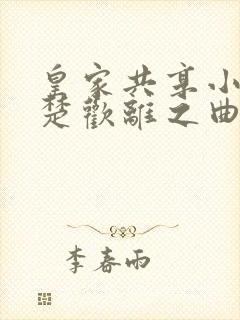 皇家共享小
楚歡離之曲
李春雨